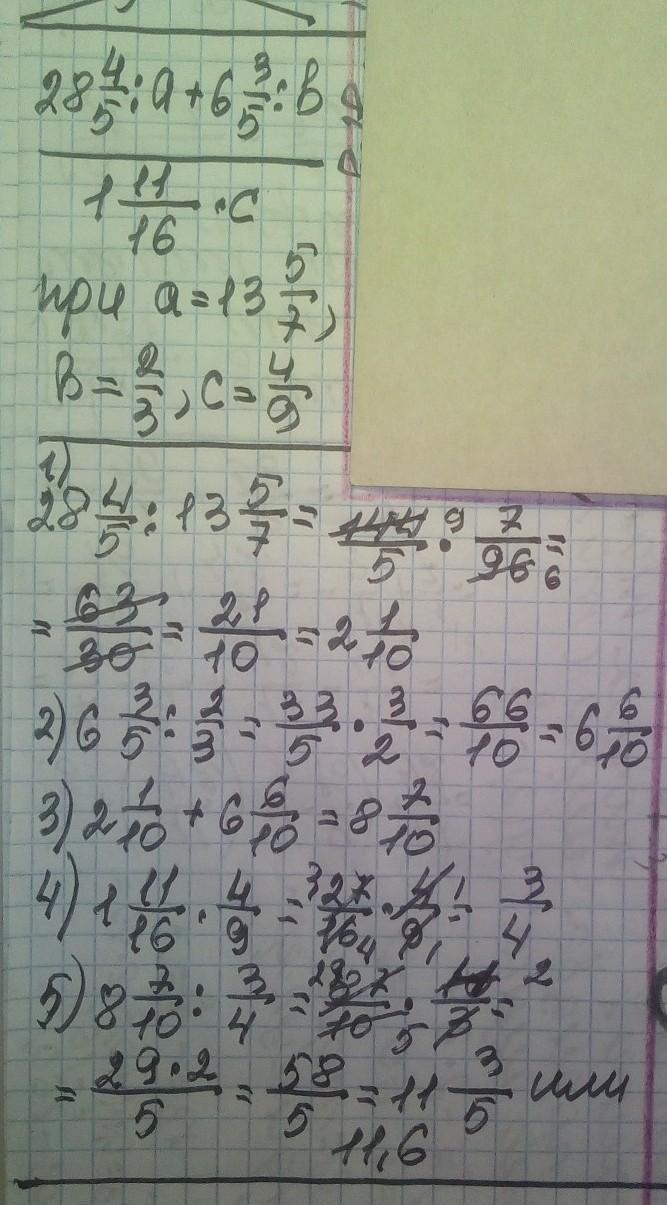 28 4/5 : a + 6 3/5 : в
1 11/16 · с
при a = 13 5/7,
в = 2/3, с = 4/9
1)
28 4/5 : 13 5/7 = 144/5 · 9 7/96 6 =
= 63/30 = 21/10 = 2 1/10
2) 6 3/5 : 2/3 = 33/5 · 3/2 = 66/10 = 6 6/10
3) 2 1/10 + 6 6/10 = 8 7/10
4) 1 11/16 · 4/9 = 3 27/16 4 · 4/9 1 1 = 3/4
5) 8 7/10 : 3/4 = 29 87/10 5 · 4/3 = 2
= 29·2/5 = 58/5 = 11 3/5 или
11,6